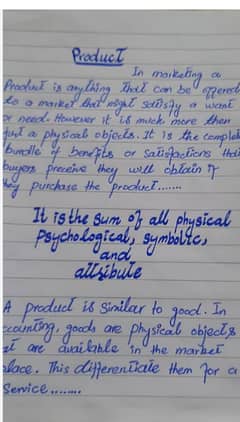 Product
In marketing a
Product is anything that can be offered
to a market that might satisfy a want
or need. However it is much more then
just a physical objects. It is the complet
bundle of benefits or satisfactions that
buyers preceive they will obtain if
they purchase the product.......
It is the sum of all physical
Psychological, symbolic,
and
attribute
A product is similar to good. In
ccounting, goods are physical objects
at are available in the market
place. This differentiate them for a
service........